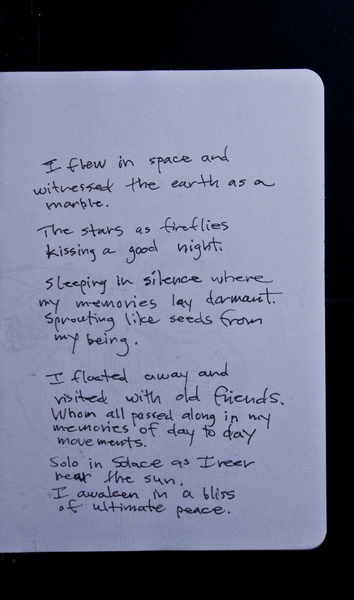 I flew in space and
witnessed the earth as a
marble.
The stars as fireflies
kissing a good night.
Sleeping in silence where
my memories lay dormant.
Sprouting like seeds from
my being.
I floated away and
visited with old friends.
Whom all passed along in my
memories of day to day
movements.
Solo in Solace as I veer
near the sun.
I awaken in a bliss
of ultimate peace.